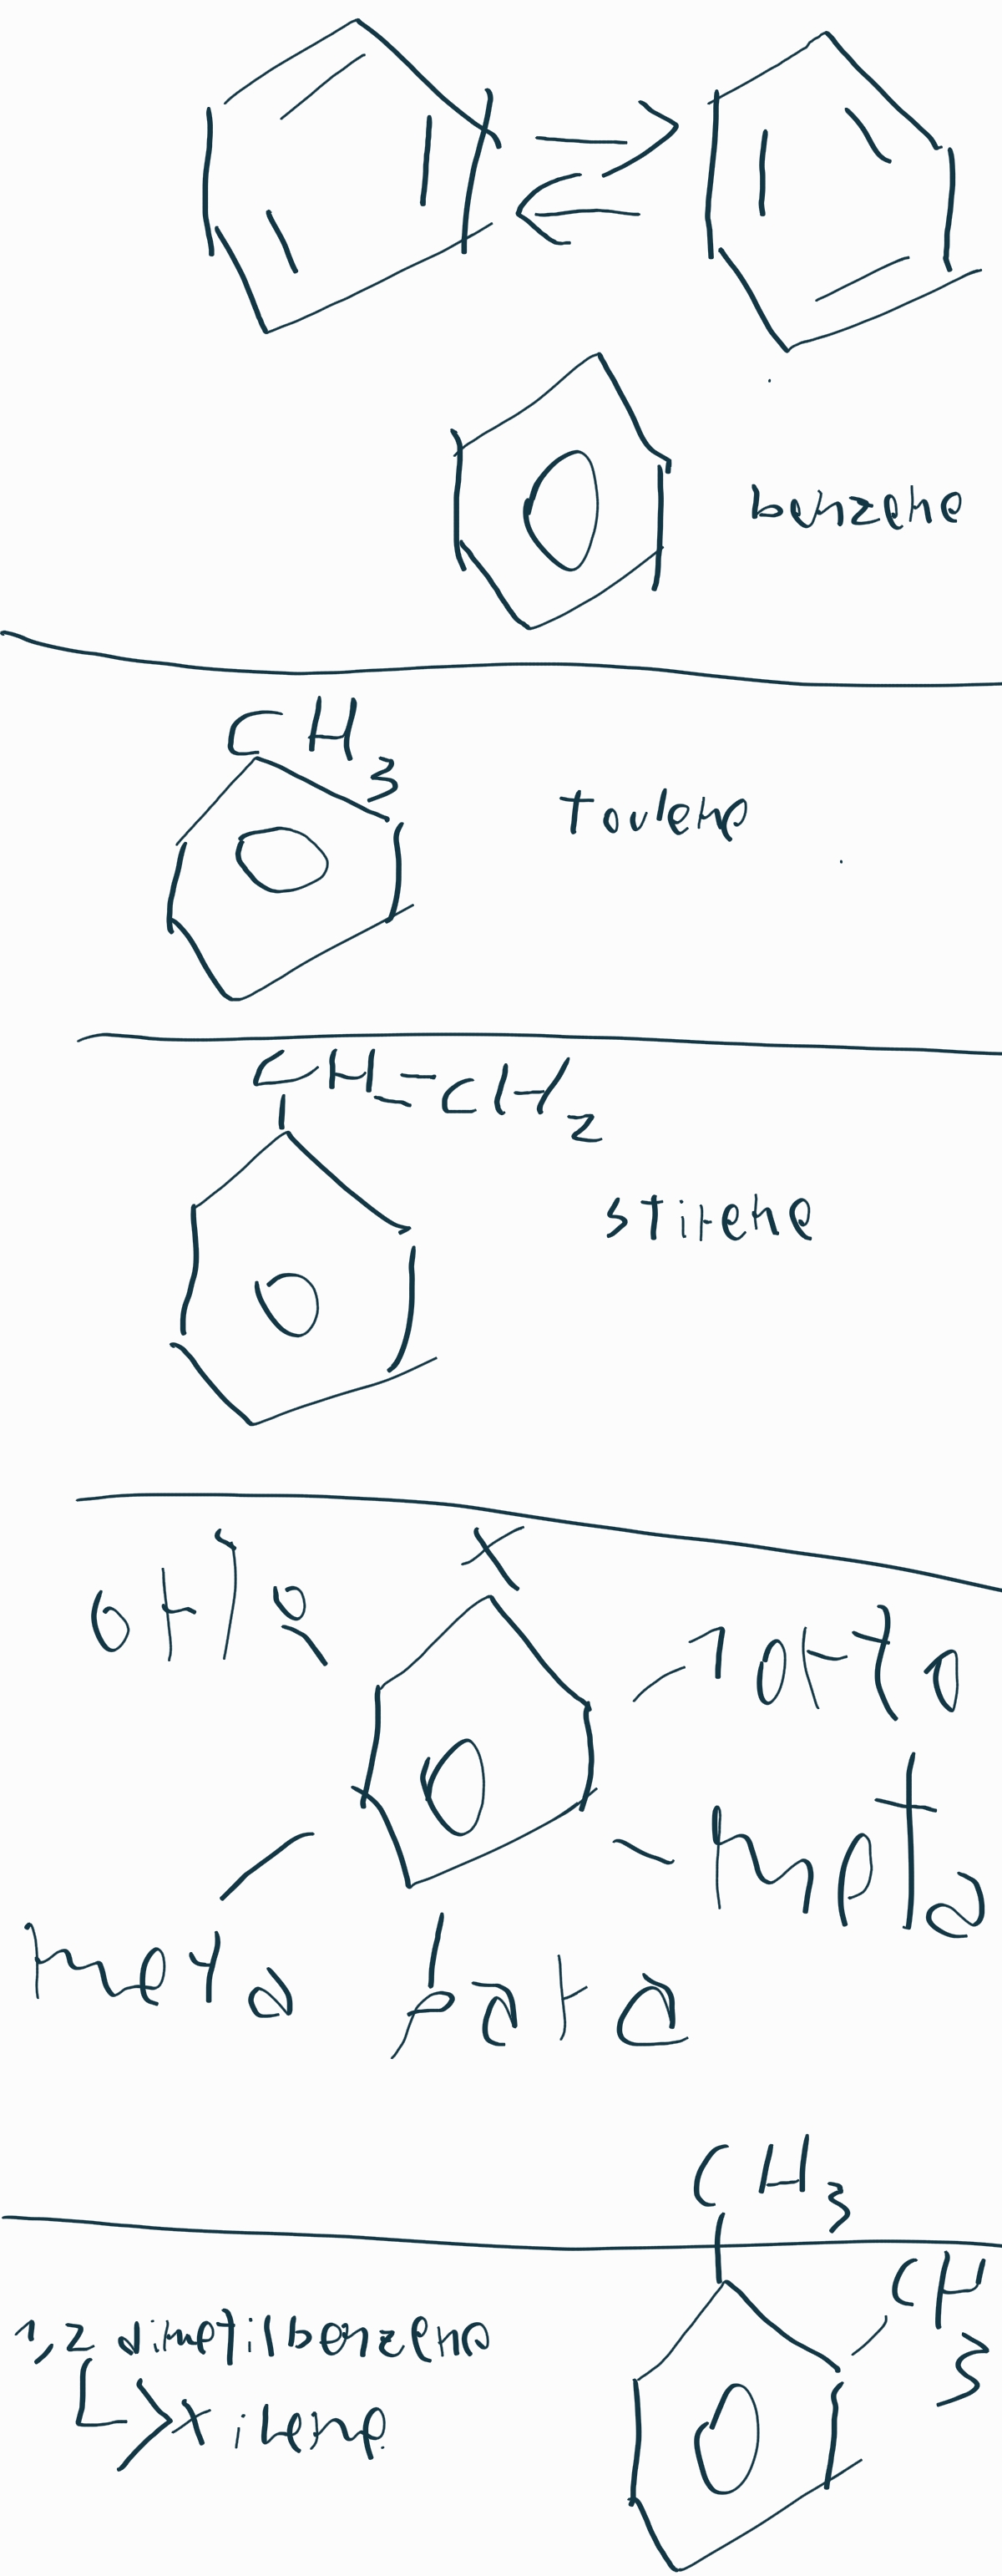 benzene
CH3
toulene
CH=CH2
stirene
X
orto
orto
meta
meta
para
CH3
CH3
1,2 dimetilbenzene
xilene